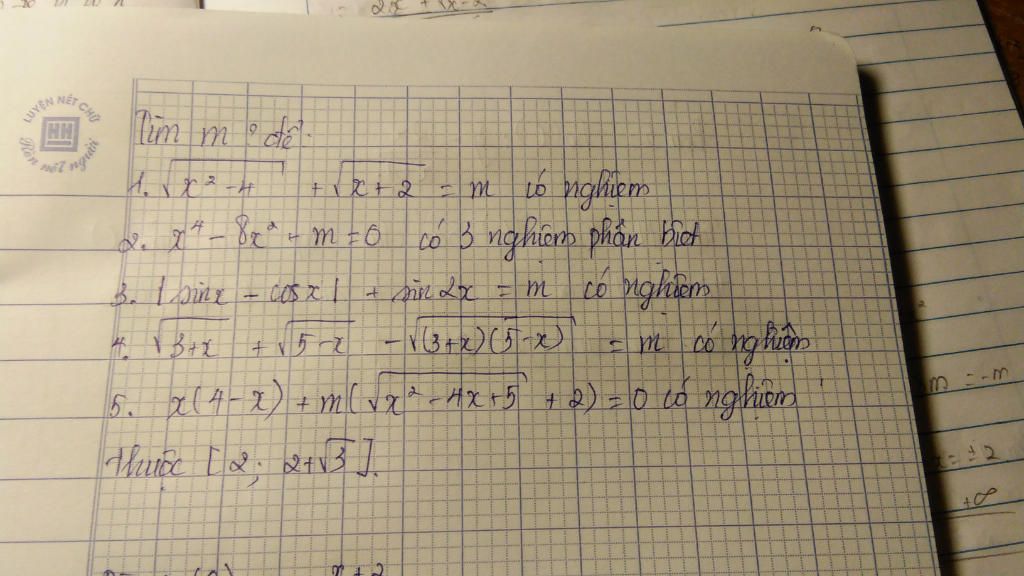 = 2x + √x-2
LUYỆN NÉT CHỮ
HH
Rèn nết người
Tìm m để:
1. √x² - 4 + √x + 2 = m có nghiệm
2. x⁴ - 8x² - m = 0 có 3 nghiệm phân biệt
3. |sinx - cosx| + sin2x = m có nghiệm
4. √3+x + √5-x - √(3+x)(5-x) = m có nghiệm
5. x(4-x) + m(√x² - 4x+5 + 2) = 0 có nghiệm
thuộc [2; 2+√3].
m = -m
x = ±2
+∞
x+2